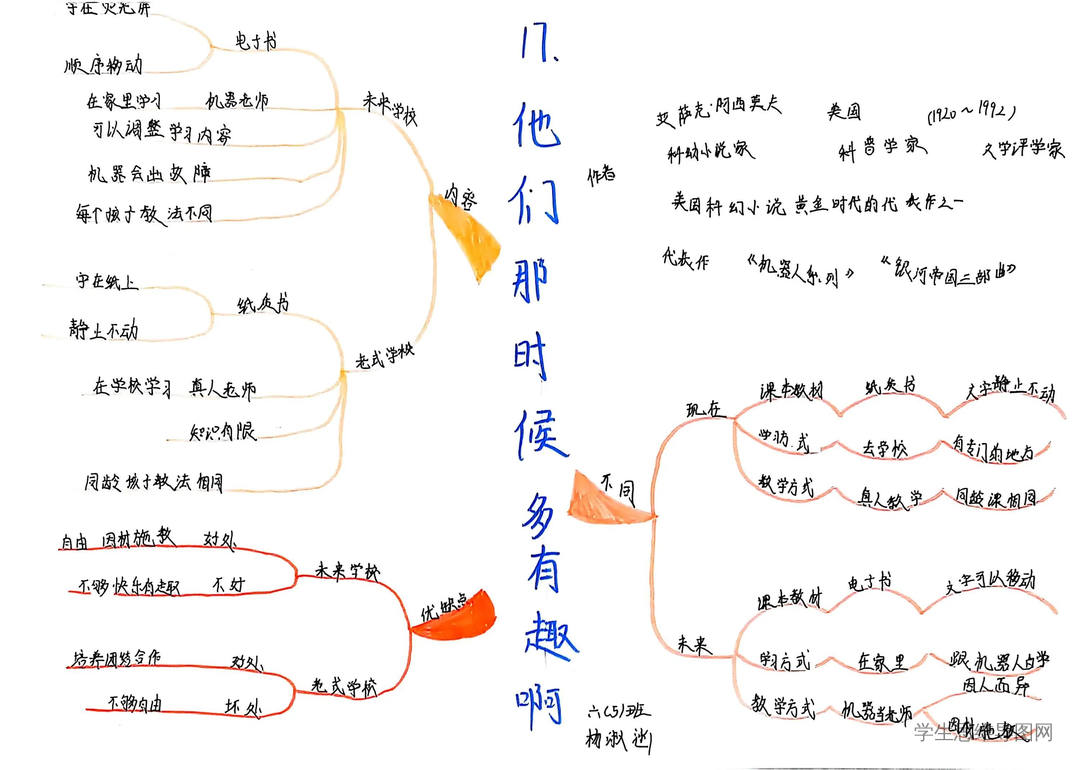 17.他们那时候多有趣啊
作者
艾萨克·阿西莫夫 美国 (1920~1992)
科幻小说家 科普学家 文学评学家
美国科幻小说黄金时代的代表作之一
代表作 《机器人系列》 《银河帝国三部曲》
内容
未来学校
电子书
字在荧光屏
顺序移动
在家里学习 机器老师
可以调整学习内容
机器会出故障
每个孩子教法不同
老式学校
纸质书
字在纸上
静止不动
在学校学习 真人老师
知识有限
同龄孩子教法相同
优缺点
未来学校
自由 因材施教 好处
不够快乐有趣 不好
老式学校
培养团结合作 好处
不够自由 坏处
不同
现在
课本教材 纸质书 文字静止不动
学习方式 去学校 有专门的地点
教学方式 真人教学 同龄课相同
未来
课本教材 电子书 文字可以移动
学习方式 在家里 跟机器人自学
教学方式 机器当老师 因人而异
因材施教
六(5)班
杨淑
学生思维导图网